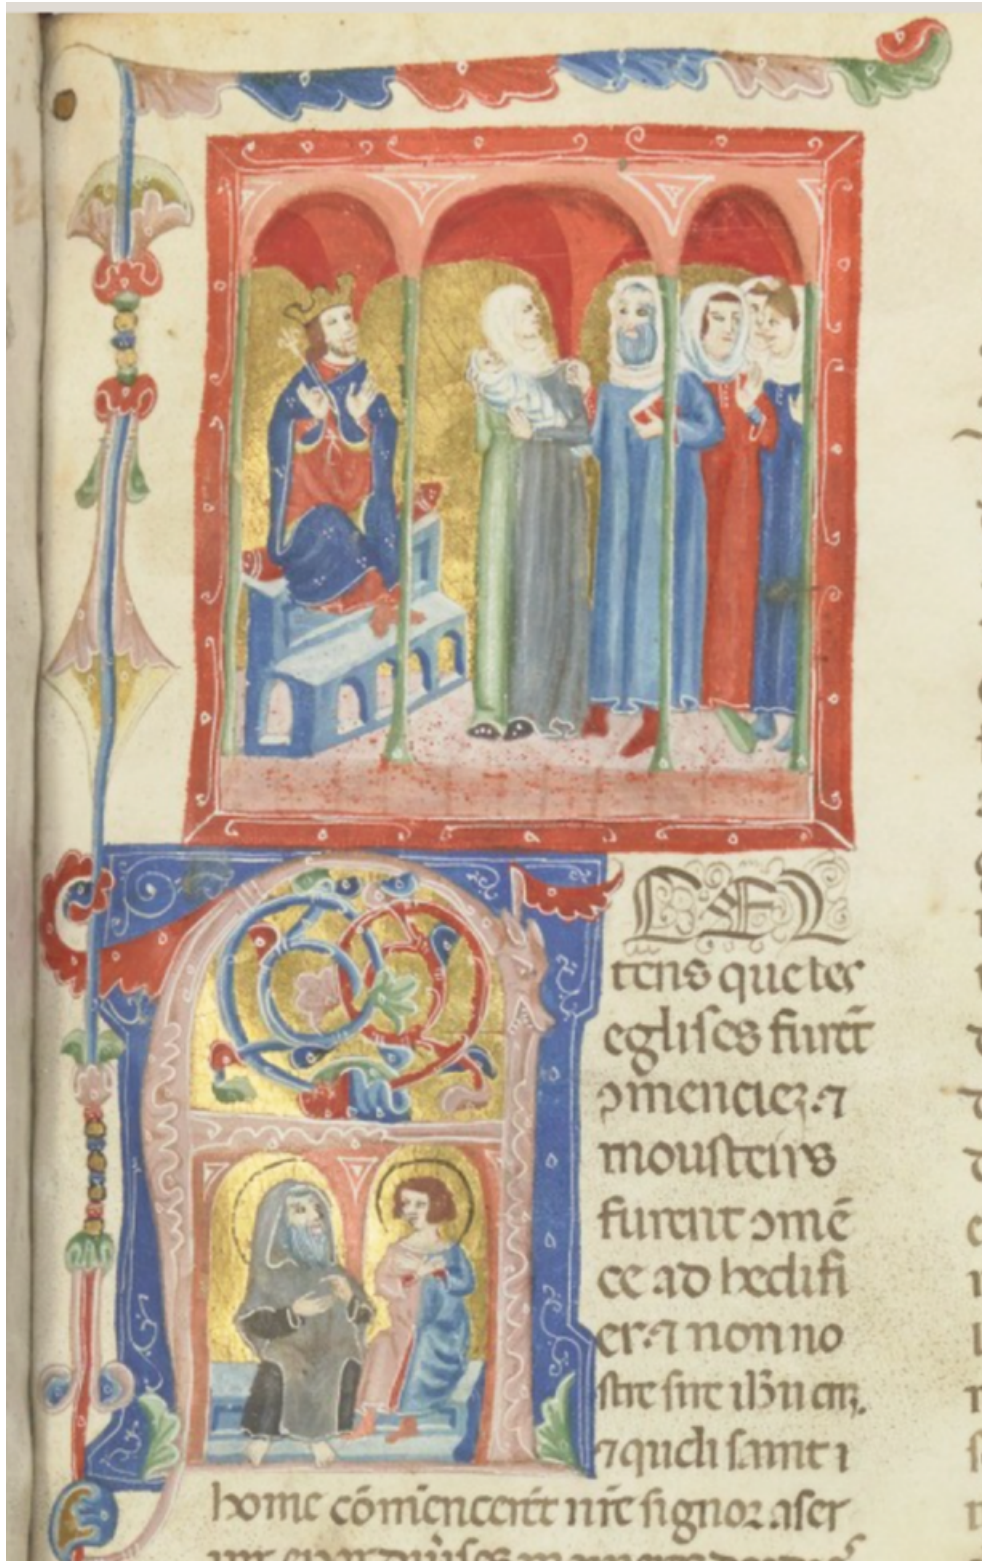 A CEL
tens que les
eglises furēt
ꝯmenciez. ⁊
mousteirs
furent ꝯmē
ce ad hedifi
er. ⁊ non no
stre sire
⁊ queli saint i
home cōmēncerēt nr̄e signor. aser